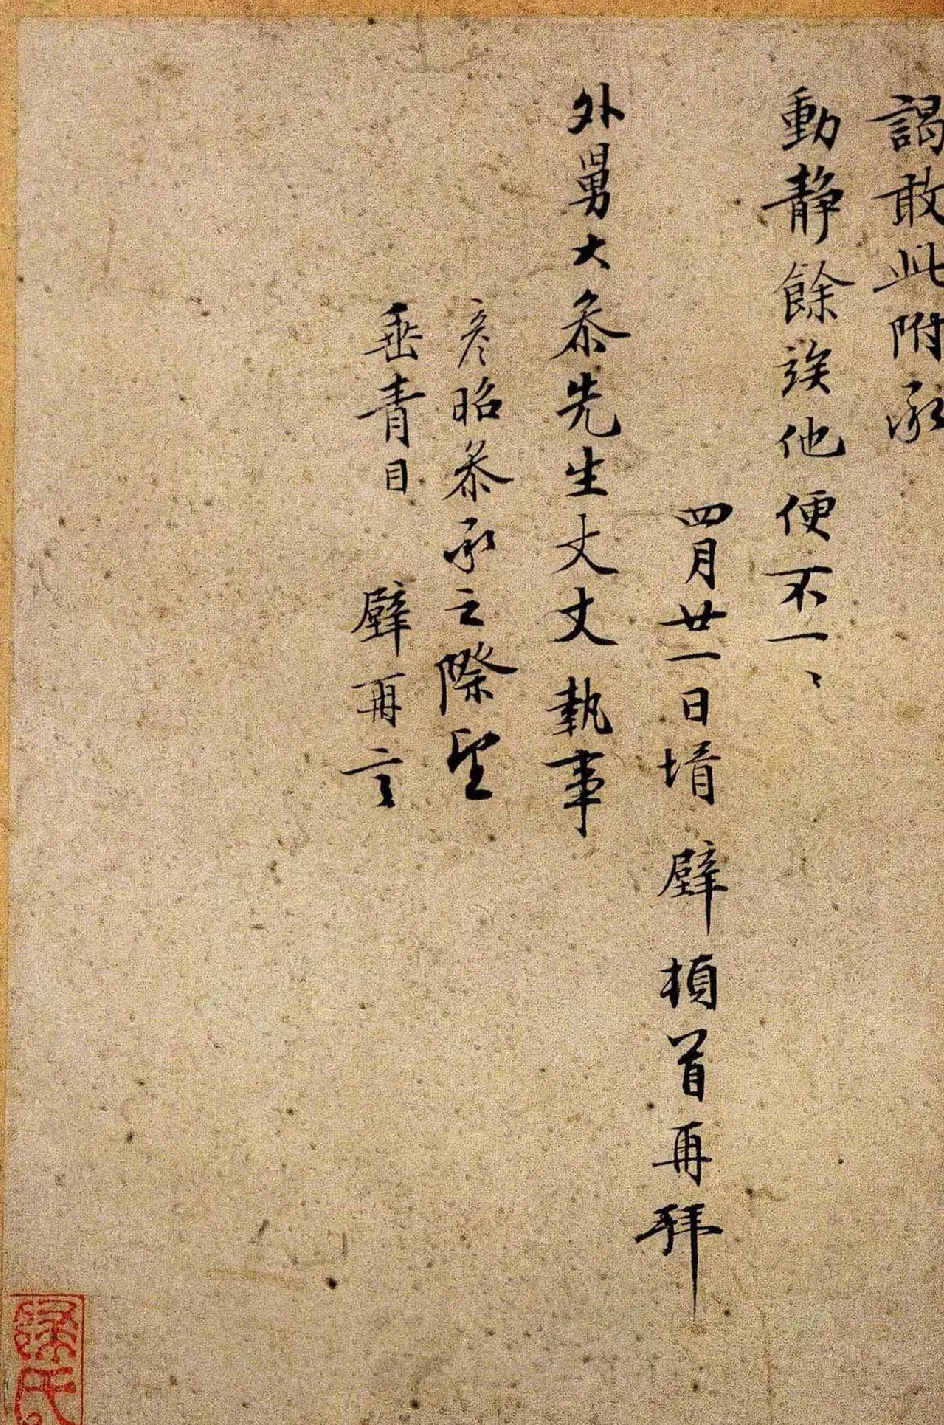 謁敢此附承
動靜餘竢他便不一、
四月廿一日壻 壁頓首再拜
外舅大叅先生丈丈執事
彥昭叅承之際望
垂青目 壁再言
氏